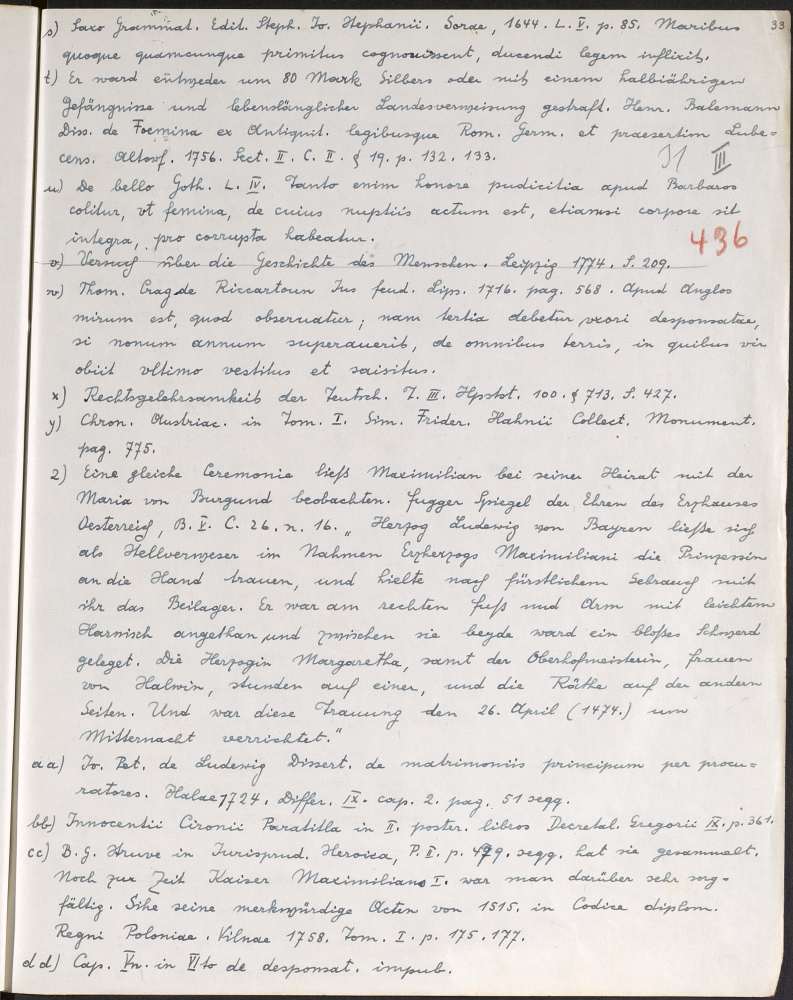 33
s) Saxo Grammat. Edit. Steph. Jo. Stephanii. Sorae, 1644. L. V. p. 85. Maribus
quoque quamcunque primitus cognovissent, ducendi legem inflixit.
t) Er ward entweder um 80 Mark Silbers oder mit einem halbiährigen
Gefängnisse und lebenslänglicher Landesverweisung gestraft. Henr. Balemann
Diss. de Foemina ex Antiquit. legibusque Rom. Germ. et praesertim Lube=
cens. Altorf. 1756. Sect. II. C. II. § 19. p. 132. 133.
III
u) De bello Goth. L. IV. Tanto enim honore pudicitia apud Barbaros
colitur, vt femina, de cuius nuptiis actum est, etiamsi corpore sit
integra, pro corrupta habeatur.
436
v) Versuch über die Geschichte des Menschen. Leipzig 1774. S. 209.
w) Thom. Crag de Riccartoun Jus feud. Lips. 1716. pag. 568. Apud Anglos
mirum est, quod obseruatur; nam tertia debetur vxori desponsatae,
si nonum annum superauerit, de omnibus terris, in quibus vir
obiit vltimo vestitus et saisitus.
x) Rechtsgelehrsamkeit der Teutsch. T. III. Hptst. 100. § 713. S. 427.
y) Chron. Austriac. in Tom. I. Sim. Frider. Hahnii Collect. Monument.
pag. 775.
z) Eine gleiche Ceremonie ließ Maximilian bei seiner Heirat mit der
Maria von Burgund beobachten. Fugger Spiegel der Ehren des Erzhauses
Oesterreich, B. V. C. 26. n. 16. „ Herzog Ludewig von Bayren ließe sich
als Stellverweser im Nahmen Erzherzogs Maximiliani die Prinzessin
an die Hand trauen, und hielte nach fürstlichem Gebrauch mit
ihr das Beilager. Er war am rechten Fuß und Arm mit leichtem
Harnisch angethan, und zwischen sie beyde ward ein bloßes Schwerd
geleget. Die Herzogin Margaretha, samt der Oberhofmeisterin, Frauen
von Halwin, stunden auf einer, und die Räthe auf der andern
Seiten. Und war diese Trauung den 26. April (1474.) um
Mitternacht verrichtet."
aa) Jo. Pet. de Ludewig Dissert. de matrimoniis principum per procu=
ratores. Halae 1724. Differ. IX. cap. 2. pag. 51 seqq.
bb) Innocentii Cironii Paratitla in V. poster. libros Decretal. Gregorii IX. p. 361.
cc) B. G. Struve in Jurisprud. Heroica, P. II. p. 479. seqq. hat sie gesammelt.
Noch zur Zeit Kaiser Maximilians I. war man darüber sehr sorg=
fältig. Sihe seine merkwürdige Acten von 1515. in Codice diplom.
Regni Poloniae. Vilnae 1758. Tom. I. p. 175. 177.
dd) Cap. Vn. in VIto de desponsat. impub.